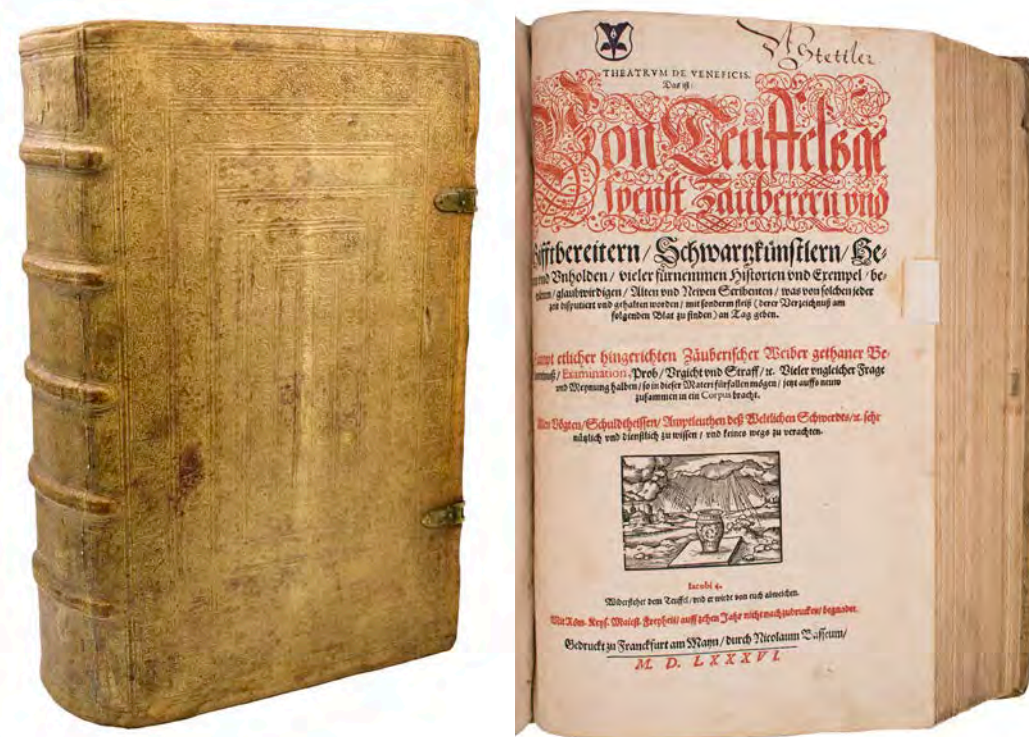 Stettler
THEATRVM DE VENEFICIS.
Das ist:
Von Teuffelsge
spenst Zauberern vnd
Gifftbereitern / Schwartzkünstlern / He-
vnd Vnholden / vieler fürnemmen Historien vnd Exempel / be-
glaubwirdigen / Alten vnd Newen Scribenten / was von solchen jeder
zeit disputiert vnd gehalten worden / mit sonderm fleiß (derer Verzeichnuß am
folgenden Blat zu finden) an Tag geben.
Sampt etlicher hingerichten Zäuberischer Weiber gethaner Be-
Examination, Prob / Vrgicht vnd Straff / ꝛc. Vieler vngleicher Frage
vnd Meynung halben / so in dieser Materi fürfallen mögen / jetzt auffs neuw
zusammen in ein Corpus bracht.
Allen Vögten / Schuldtheissen / Amptleuthen deß Weltlichen Schwerdts / ꝛc. sehr
nützlich vnd dienstlich zu wissen / vnd keines wegs zu verachten.
Iacobi 4.
Widerstehet dem Teuffel / vnd er wirdt von euch abweichen.
Mit Röm. Keys. Maiest. Freyheit / auff zehen Jahr nicht nachzudrucken / begnadet.
Gedruckt zu Franckfurt am Mayn / durch Nicolaum Basseum /
M. D. LXXXVI.